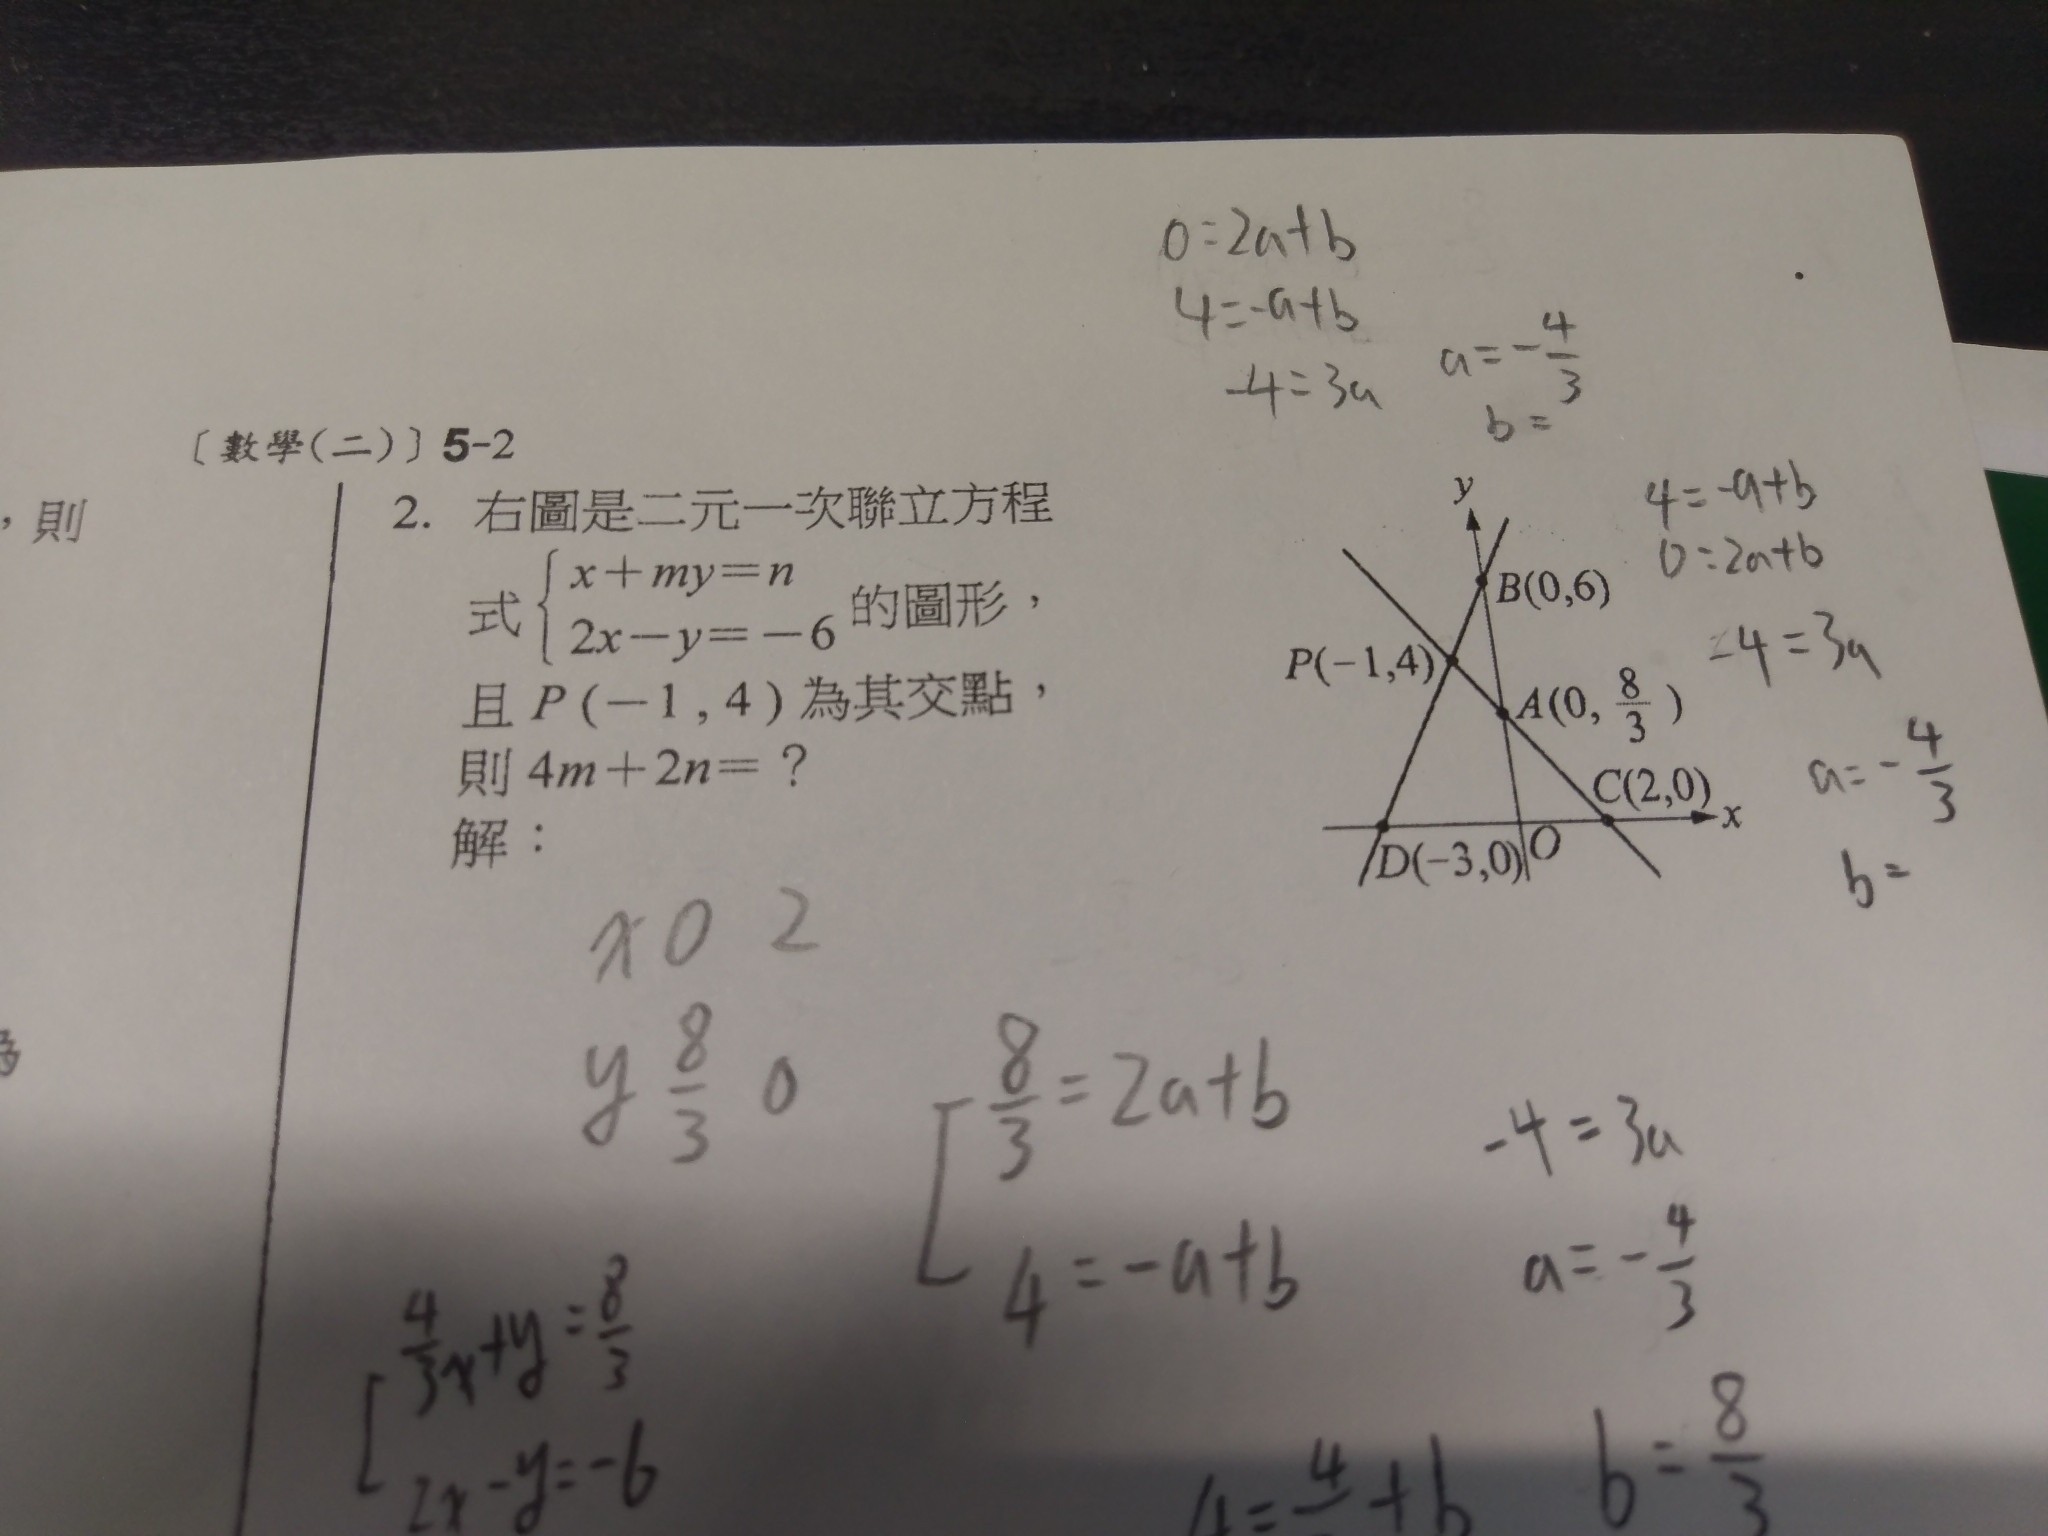 0=2a+b
4=-a+b
-4=3a
a=-4/3
b=
〔數學(二)〕5-2
，則
2. 右圖是二元一次聯立方程
式{x+my=n
2x-y=-6 的圖形，
且P(-1,4)為其交點，
則4m+2n=？
解：
y
B(0,6)
P(-1,4)
A(0, 8/3)
C(2,0)
x
D(-3,0)
O
4=-a+b
0=2a+b
-4=3a
a=-4/3
b=
x 0 2
y 8/3 0
8/3=2a+b
4=-a+b
-4=3a
a=-4/3
b=8/3
4/3x+y=8/3
2x-y=-6